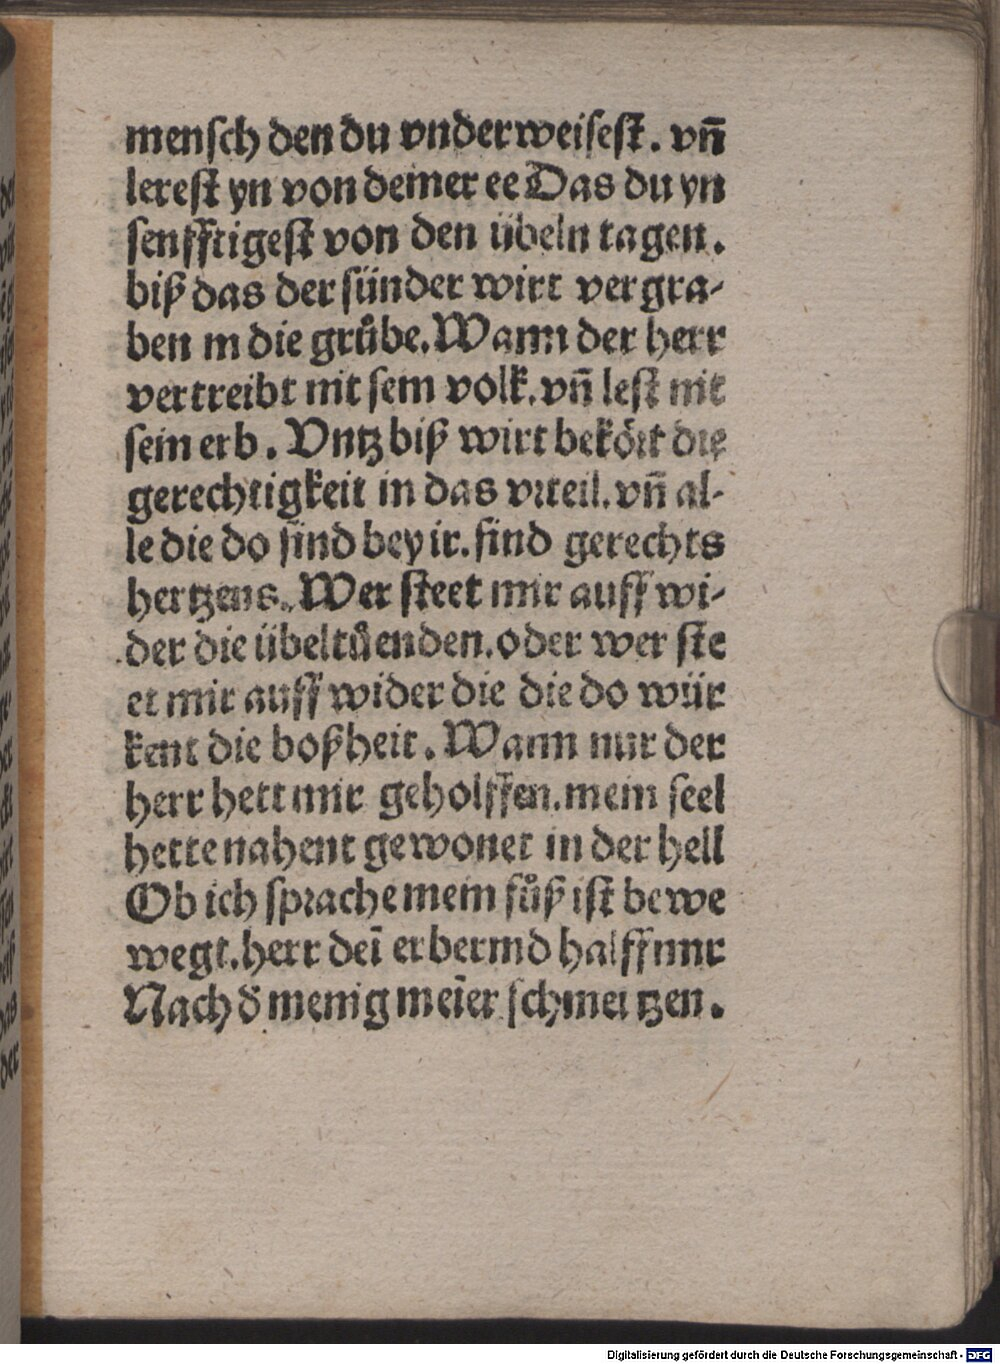 mensch den du vnderweisest. vn̄
lerest yn von deiner ee Das du yn
senfftigest von den übeln tagen.
biß das der sünder wirt vergra-
ben in die grůbe. Wann der herr
vertreibt nit sein volk. vn̄ lest nit
sein erb. Vntz biß wirt bekört die
gerechtigkeit in das vrteil. vn̄ al-
le die do sind bey ir. sind gerechts
hertzens. Wer steet mir auff wi-
der die übeltůenden. oder wer ste
et mir auff wider die die do wür
kent die boßheit. Wann nur der
herr hett mir geholffen. mein seel
hette nahent gewonet in der hell
Ob ich sprache mein fůß ist bewe
wegt. herr deī erbermd halff mir
Nach d̄ menig meīer schmertzen.
Digitalisierung gefördert durch die Deutsche Forschungsgemeinschaft - DFG